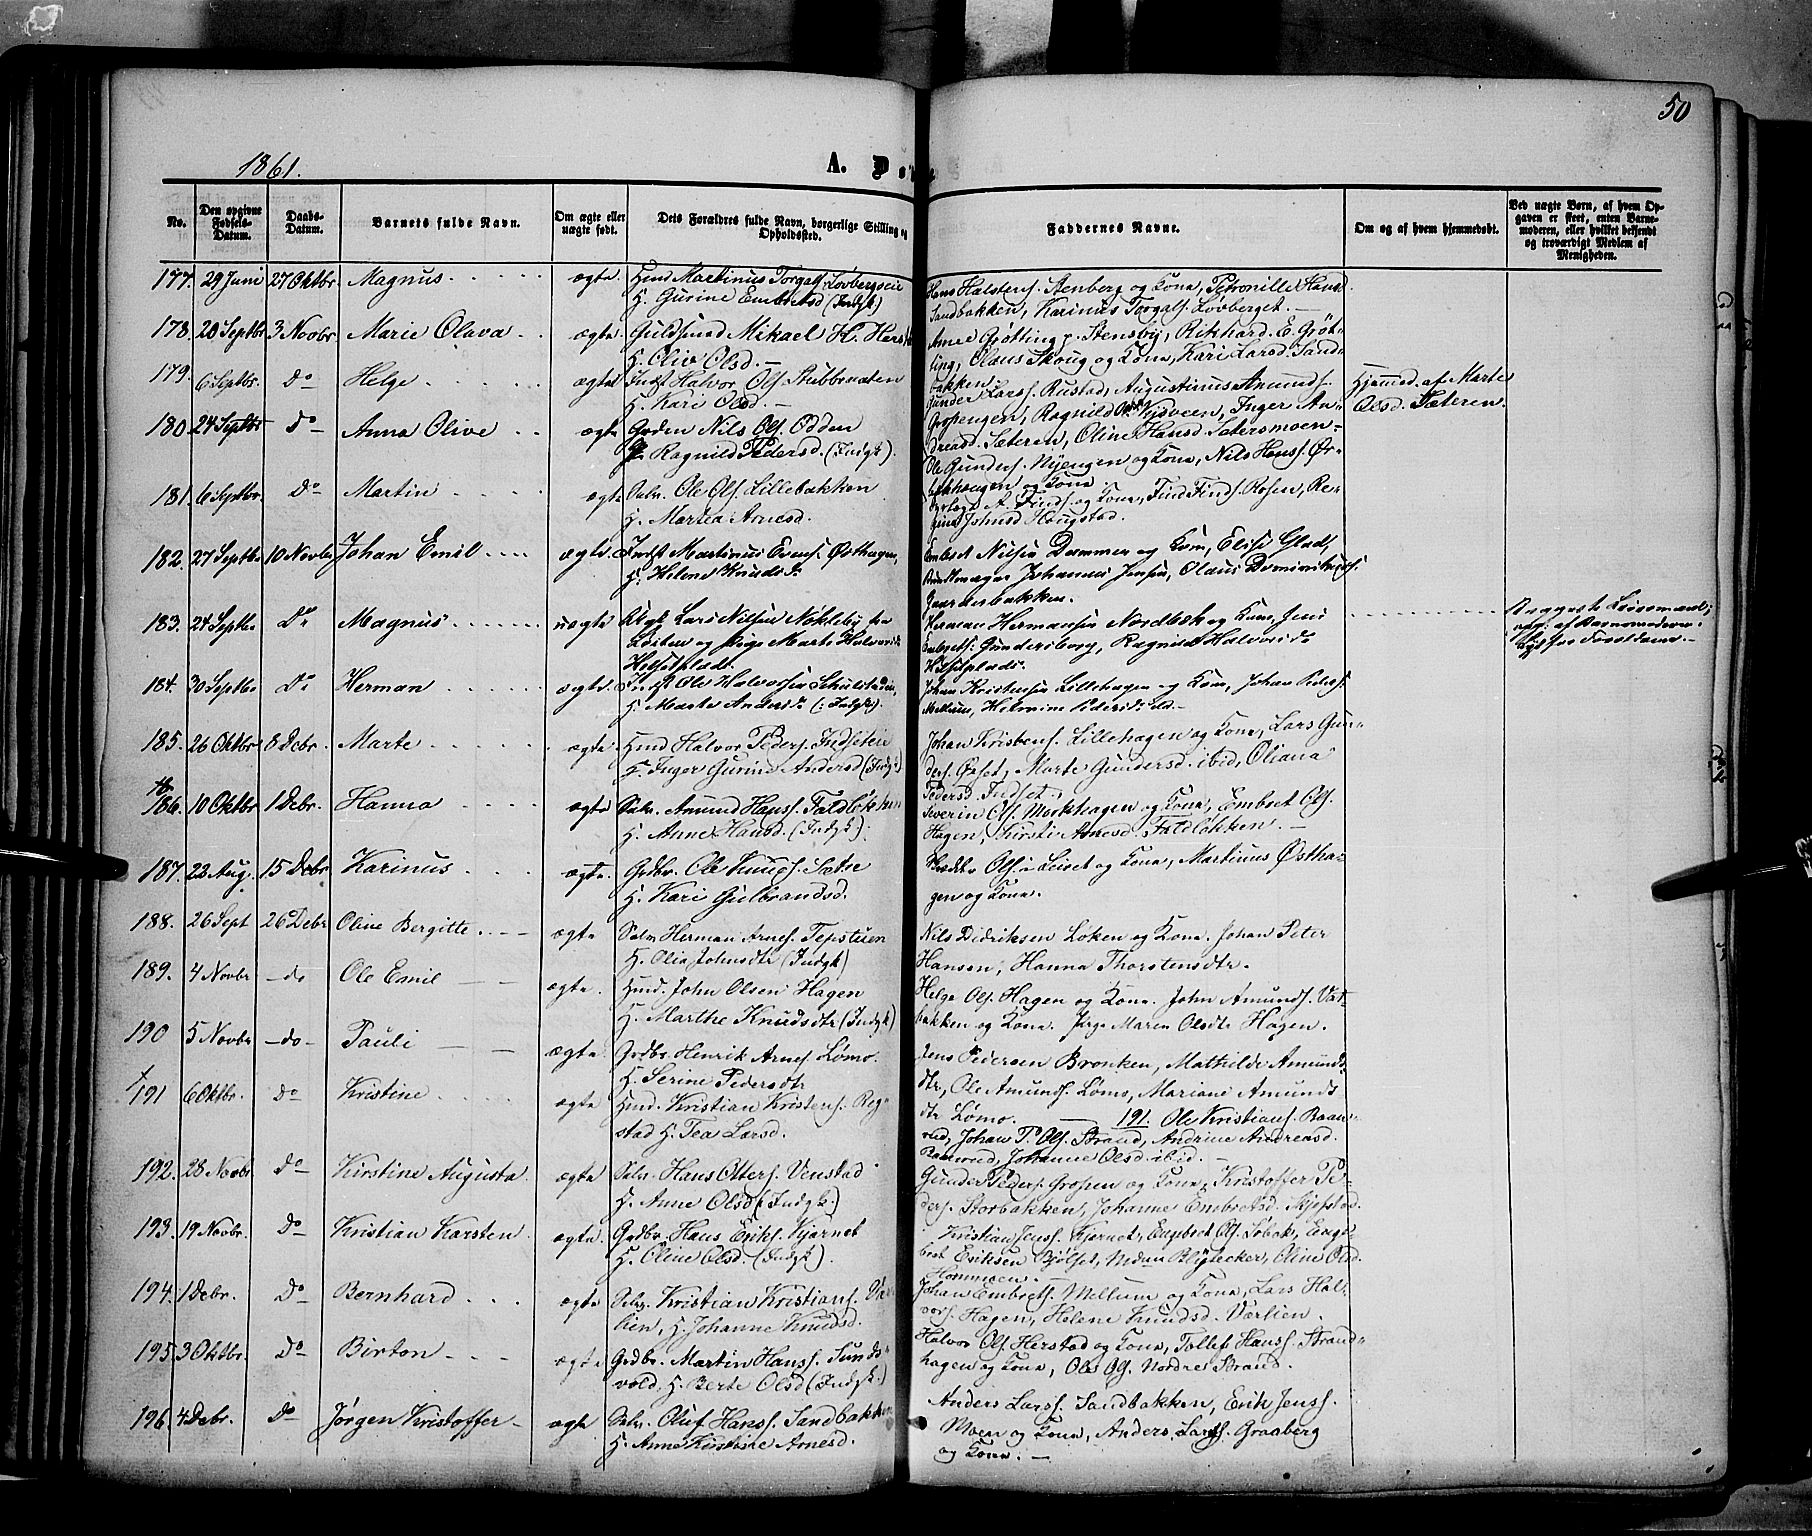 50
1861.
A. Dø
No.
Den opgivne Fødsels-Datum.
Daabs-Datum.
Barnets fulde Navn.
Om ægte eller uægte født.
Dets Forældres fulde Navn, borgerlige Stilling og Opholdssted.
Faddernes Navne.
Om og af hvem hjemmedøbt.
Ved uægte Børn, af hvem Opgaven er skeet, enten Barnemoderen, eller hvilket bekjendt og troværdigt Medlem af Menigheden.
177. 29 Juni 27 Oktbr. Magnus ægte. Hmd Martinus Torgals. Løvbergseie
H. Gurine Embretsd (Indgk)
Hans Halsters. Stenberg og Kona, Petronille Hansd.
Sandbakken, Karinus Torgals. Løvberget. —
178. 20 Septbr 3 Novbr. Marie Olava ægte. Guldsmed Mikael H. Herst
H. Oliv Olsd. —
Anne Grøtting p. Stensby, Rikhard E. Grøt-
ting, Olaus Skoug og Kona, Kari Larsd. Sand-
bakken.
179. 6 Septbr. Do Helge ægte Indst Halvor Ols. Stubbrusten
H. Kari Olsd. —
Gunder Larss. Rustad, Augustinus Amunds.
Grosengen, Ragnild Kydveen, Inger An-
dreasd. Sæteren, Oline Hansd Sætersmoen-
Hjemmed. af Marte
Olsd. Sæteren.
180. 24 Septbr Do Anna Olive ægte Nils Ols. Odden
Ragnild Pedersd. (Indgk).
Ole Gunders. Nyengen og Kona, Nils Hanss. Ør-
bækhaugen og Kona
181. 6 Septbr. Do Martin ægte Ole Ols. Lillebakken
H. Martea Arnesd.
A. Finds. og Kona, Find Finds. Rosen, Re-
gine Johnsd Haugstad.
182. 27 Septbr 10 Novbr Johan Emil ægte. Indst Martinus Evens. Østhagen,
H. Helene Knudsd.
Nilsen Dammen og Kone, Elise Glad,
Johannes Jensen, Olaus
Gaarderbakken.
183. 24 Septbr Do Magnus uægte Ungk. Lars Nilsen Nøkleby fra
Løiten og Pige Marte Halvorsd.
Helsetplads.
Herman Hermansen Nordbæk og Kone, Jens
Embrets. Gundersborg, Ragnild Halvorsd.
Helsetplads.
Leiermaal;
opg. af Barnemoderen
184. 30 Septbr Do Herman ægte. Indst Ole Halvorsen Schulstaden,
H. Marte Andersd. (Indgk).
Johan Kristensen Lillehagen og Kone, Johan Peders.
Mellum, Helmine Pedersd. ibd. —
185. 26 Oktbr. 8 Debr. Marte ægte Hmd Halvor Peders. Indseteie
H. Inger Gurine Andersd (Indgk)
Johan Kristens. Lillehagen og Kona, Lars Gun-
ders. Øiset, Marte Gundersd. ibid, Oliana
Pedersd. Indset.
186. 10 Oktbr 1 Debr. Hanna ægte Selv. Amund Hanss. Faldløkken
H. Anne Hansd. (Indgk).
Severin Ols. Mørkhagen og Kona, Embret Ols.
Hagen, Kirsti Arnesd. Faldløkken. —
187. 22 Aug. 15 Debr Karinus ægte. Grdbr. Ole Knuds. Sætre
H. Kari Gulbrandsd.
Ols. Leiret og Kona, Martinus Østha-
gen og Kona.
188. 26 Sept 26 Debr Oline Bergitte. ægte Selv Herman Arnes. Tepstuen
H. Olia Johnsdtr (Indgk)
Nils Didriksen Løken og Kona. Johan Peter
Hansen, Hanna Thorstensdtr.
189. 4 Novbr —do Ole Emil ægte. Hmd. John Olsen Hagen
H. Marthe Knudsdtr (Indgk)
Helge Ols. Hagen og Kona. John Amunds. Vat-
bakken og Kona. Pige Maren Olsdtr Hagen.
190 5 Novbr —do— Pauli ægte Grdbr. Henrik Arnes. Lømo.
H. Serine Pedersdtr
Jens Pedersen Bronken, Mathilde Amunds-
dtr, Ole Amunds. Lømo, Mariane Amunds
dtr Lømo. —
191 6 Oktbr. Do Kristine ægte Hmd. Kristian Kristens. Reg-
stad H. Tea Larsd.
191. Ole Kristians. Baan-
rud, Johan P. Ols. Strand, Andrine Andreasd.
Baanrud, Johanne Olsd. ibid. —
192. 28 Novbr Do Kirstine Augusta. ægte Selv. Hans Otters. Venstad
H. Anne Olsd (Indgk.)
Gunder Peders. Grosen og Kona, Kristoffer Pe-
ders. Storbakken, Johanne Embretsd. Skjefstad.
193. 19 Novbr. Do Kristian Karsten. ægte. Grdbr. Hans Eriks. Kjernet
H. Oline Olsd. (Indgk).
Kristian Jenss. Kjernet, Engebret Ols. Løbak, Enge-
bret Eriksen Bjølset, Blystecker, Oline Olsd.
Hommoen.
194. 1 Debr. Do Bernhard ægte Selv. Kristian Kristians. Vær
lien, H. Johanne Knudsd.
Johan Embrets. Mellum og Kona, Lars Hal-
vors. Hagen, Helene Knudsd. Værlien.
195. 3 Oktbr. Do Birton ægte Grdbr. Martin Hanss. Sunds-
vold, H. Berte Olsd (Indgk.)
Halvor Ols. Herstad og Kona, Tollef Hanss. Strand-
hagen og Kona, Ole Ols. Nordre Strand.
196. 4 Debr. Do Jørgen Kristoffer — ægte Selv. Oluf Hanss. Sandbakken
H. Anne Kirstine Arnesd.
Anders Larss. Sandbakken, Erik Jenss.
Moen og Kona, Anders Larss. Graaberg
og Kona. —